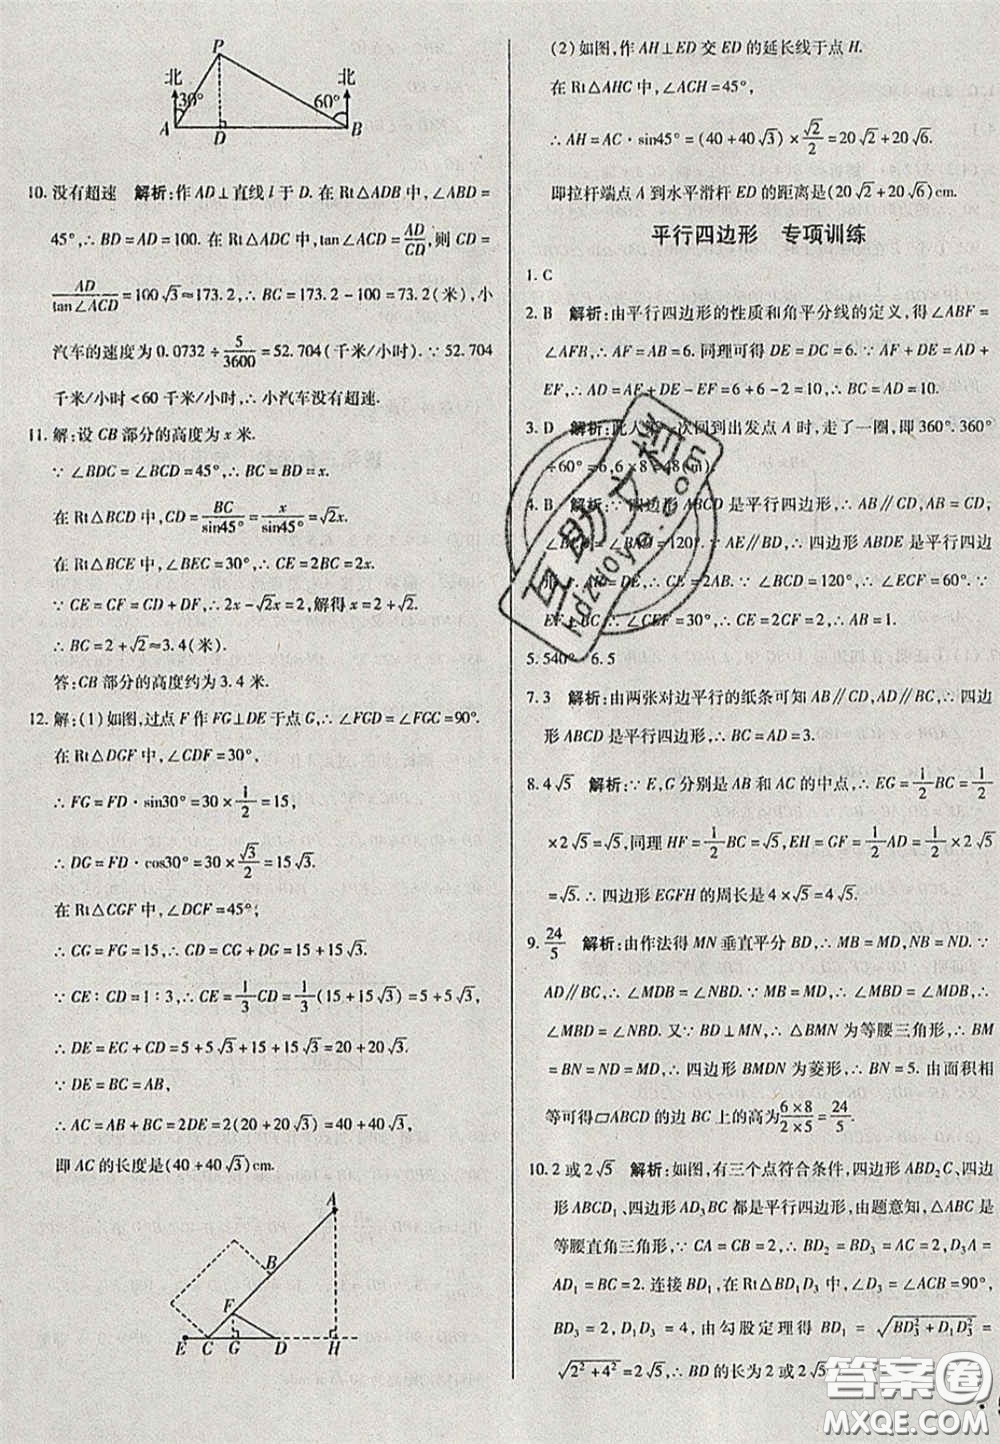 P
北
北
30°
60°
A
D
B
10. 没有超速 解析:作 AD⊥直线 l 于 D. 在 Rt△ADB 中,∠ABD=
45°,∴ BD=AD=100. 在 Rt△ADC 中,tan∠ACD=AD/CD,∴ CD=
AD/tan∠ACD=100√3≈173.2,∴ BC=173.2-100=73.2(米),小
汽车的速度为 0.0732÷5/3600=52.704(千米/小时). ∵ 52.704
千米/小时<60 千米/小时,∴ 小汽车没有超速.
11. 解:设 CB 部分的高度为 x 米.
∵ ∠BDC=∠BCD=45°,∴ BC=BD=x.
在 Rt△BCD 中,CD=BC/sin45°=x/sin45°=√2x.
在 Rt△BCE 中,∠BEC=30°,∴ CE=2BC=2x.
∵ CE=CF=CD+DF,∴ 2x-√2x=2,解得 x=2+√2.
∴ BC=2+√2≈3.4(米).
答:CB 部分的高度约为 3.4 米.
12. 解:(1)如图,过点 F 作 FG⊥DE 于点 G,∴ ∠FGD=∠FGC=90°.
在 Rt△DGF 中,∠CDF=30°,
∴ FG=FD·sin30°=30×1/2=15,
∴ DG=FD·cos30°=30×√3/2=15√3.
在 Rt△CGF 中,∠DCF=45°,
∴ CG=FG=15,∴ CD=CG+DG=15+15√3.
∵ CE∶CD=1∶3,∴ CE=1/3CD=1/3(15+15√3)=5+5√3,
∴ DE=EC+CD=5+5√3+15+15√3=20+20√3.
∵ DE=BC=AB,
∴ AC=AB+BC=2DE=2(20+20√3)=40+40√3,
即 AC 的长度是(40+40√3)cm.
A
B
F
E C G D H
(2)如图,作 AH⊥ED 交 ED 的延长线于点 H.
在 Rt△AHC 中,∠ACH=45°,
∴ AH=AC·sin45°=(40+40√3)×√2/2=20√2+20√6.
即拉杆端点 A 到水平滑杆 ED 的距离是(20√2+20√6)cm.
平行四边形 专项训练
1. C
2. B 解析:由平行四边形的性质和角平分线的定义,得∠ABF=
∠AFB,∴ AF=AB=6. 同理可得 DE=DC=6. ∵ AF+DE=AD+
EF,∴ AD=AF+DE-EF=6+6-2=10,∴ BC=AD=10.
3. D 解析:此人第一次回到出发点 A 时,走了一圈,即 360°. 360°
÷60°=6,6×8=48(m)
4. B 解析:∵ 四边形 ABCD 是平行四边形,∴ AB∥CD,AB=CD,
∠BCD=∠BAD=120°. ∵ AE∥BD,∴ 四边形 ABDE 是平行四边
形,∴ AB=DE,∴ CE=2AB. ∵ ∠BCD=120°,∴ ∠ECF=60°. ∵
EF⊥BC,∴ ∠CEF=30°,∴ CE=2CF=2,∴ AB=1.
5. 540° 6. 5
7. 3 解析:由两张对边平行的纸条可知 AB∥CD,AD∥BC,∴ 四边
形 ABCD 是平行四边形,∴ BC=AD=3.
8. 4√5 解析:∵ E,G 分别是 AB 和 AC 的中点,∴ EG=1/2BC=1/2
×2√5=√5,同理 HF=1/2BC=√5,EH=GF=1/2AD=1/2×2√5
=√5. ∴ 四边形 EGFH 的周长是 4×√5=4√5.
9. 24/5 解析:由作法得 MN 垂直平分 BD,∴ MB=MD,NB=ND. ∵
AD∥BC,∴ ∠MDB=∠NBD. ∵ MB=MD,∴ ∠MBD=∠MDB,∴
∠MBD=∠NBD. 又∵ BD⊥MN,∴ △BMN 为等腰三角形,∴ BM
=BN=ND=MD,∴ 四边形 BMDN 为菱形,∴ BN=5. 由面积相
等可得▱ABCD 的边 BC 上的高为6×8/2×5=24/5.
10. 2 或 2√5 解析:如图,有三个点符合条件,四边形 ABD₂C、四边
形 ABCD₁、四边形 AD₃BC 都是平行四边形,由题意知,△ABC 是
等腰直角三角形,∵ CA=CB=2,∴ BD₂=BD₃=AC=2,D₃A=
AD₁=BC=2. 连接 BD₁,在 Rt△BD₃D₁ 中,∠D₃=∠ACB=90°,
BD₃=2,D₁D₃=4,由勾股定理得 BD₁=√(BD₃²+D₁D₃²)=
√(2²+4²)=2√5,∴ BD 的长为 2 或 2√5.
互助文档
hdzuoye.com
答案圈
MXQE.COM